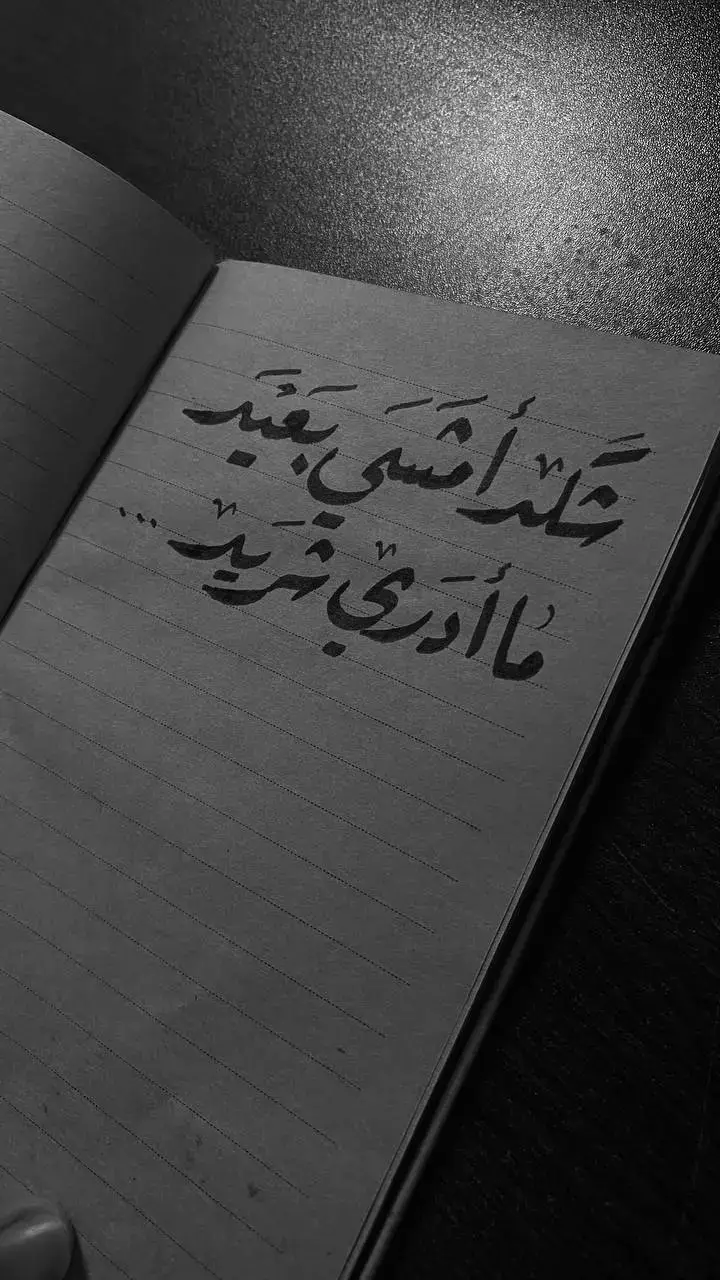 شَگد أمشَي بَعَيد
ما أدَري شرَيد ...